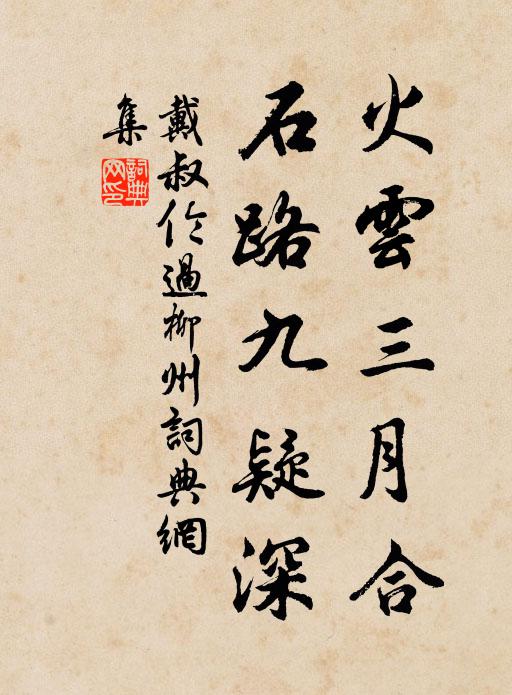 火雲三月合
石路九疑深
戴叔伦過柳州詞典網
集
詞典網印